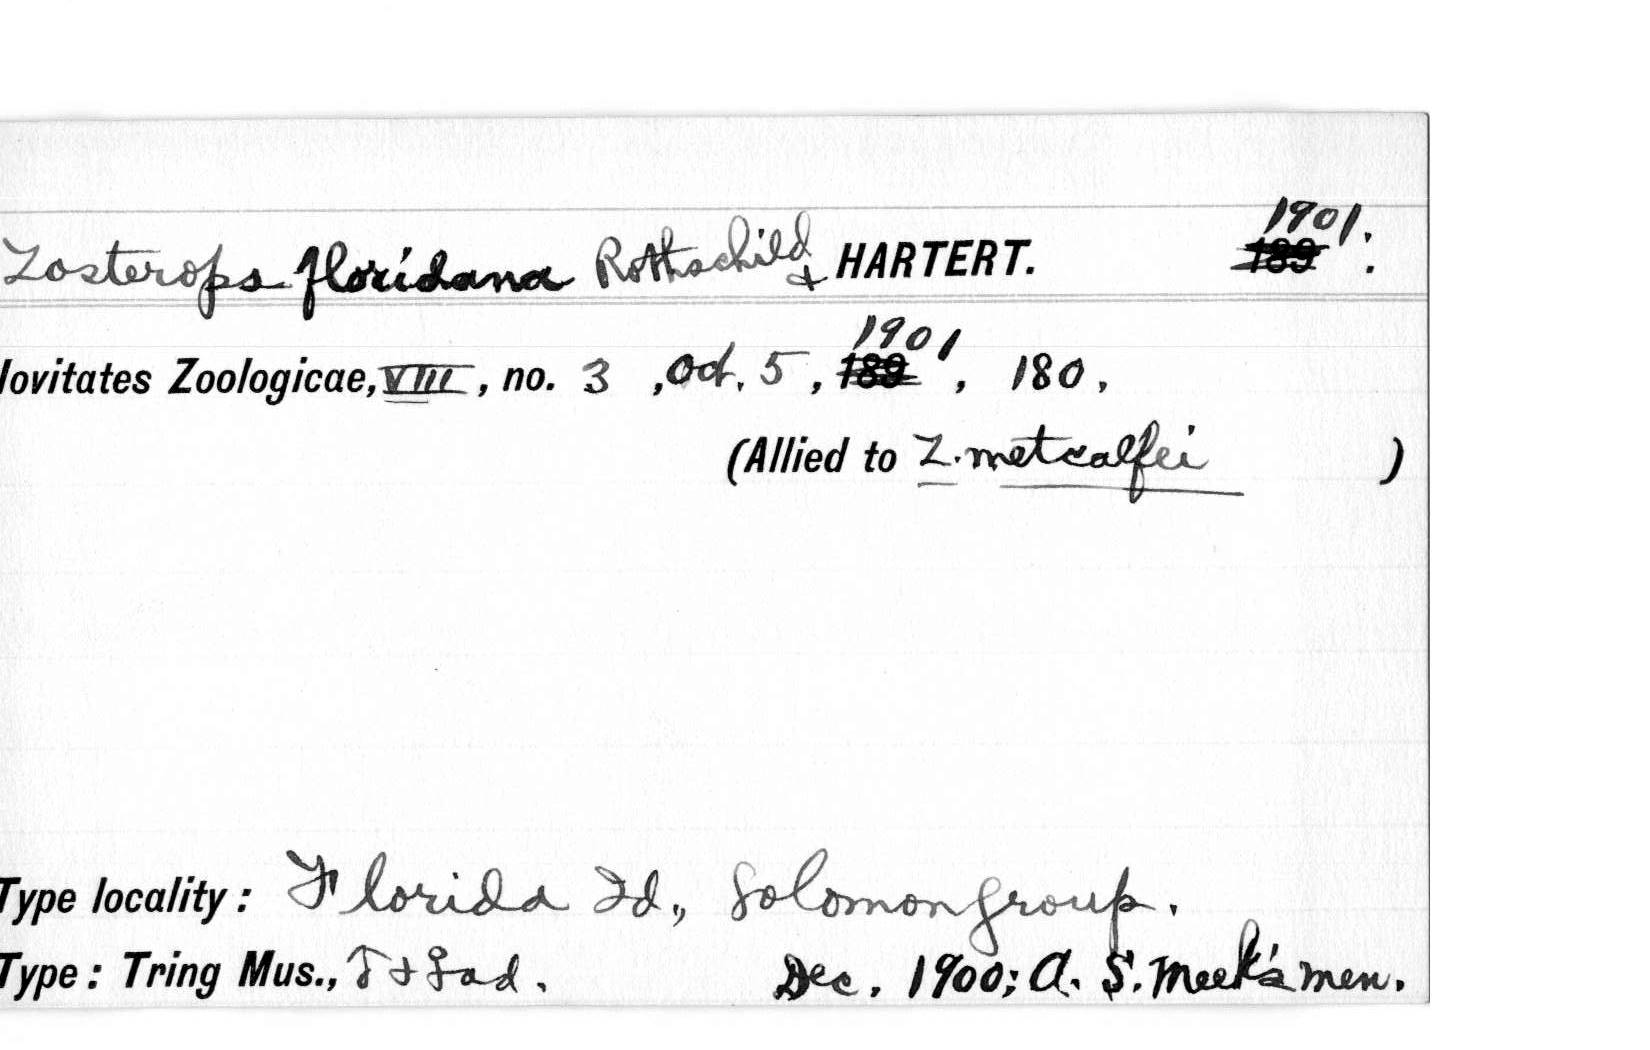 Zosterops floridana Rothschild & HARTERT. 1901.
ovitates Zoologicae, VIII, no. 3, Oct. 5, 1901, 180.
(Allied to Z. metcalfei)
Type locality: Florida Id., Solomon Group.
Type: Tring Mus., ad. Dec. 1900; A. S. Meek's men.